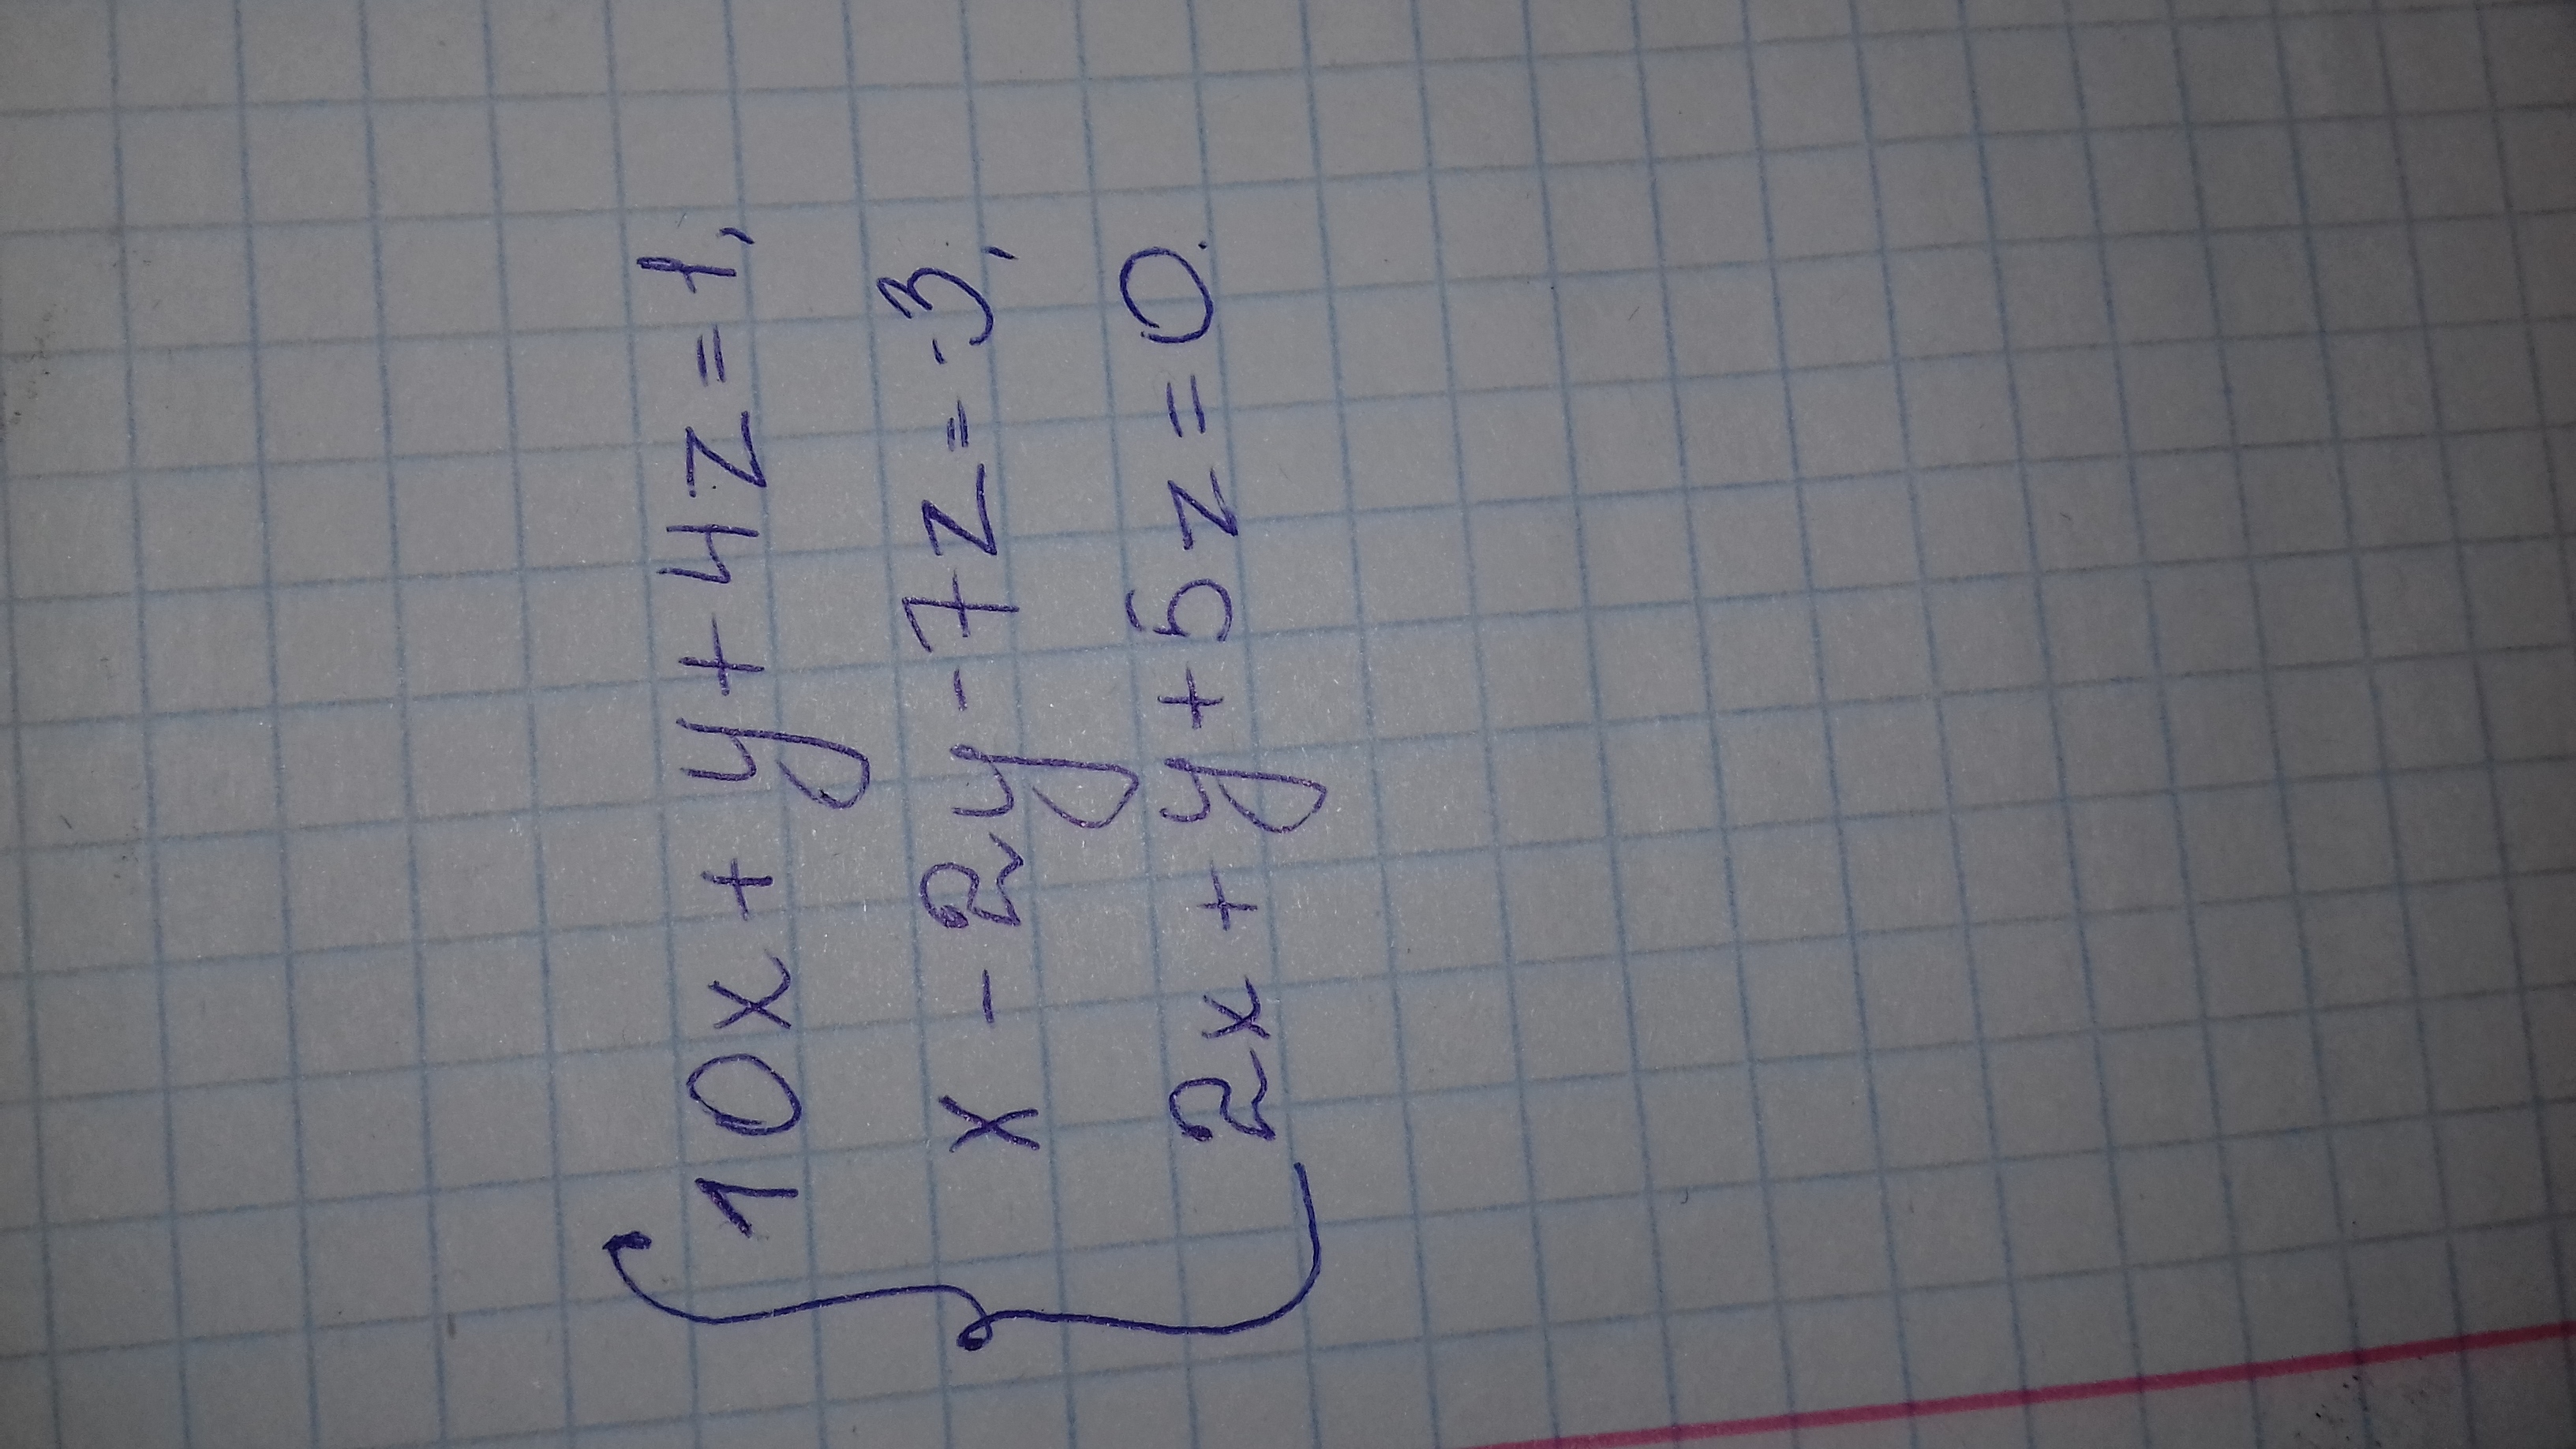 10x + y + 4z = 1,
x - 2y - 7z = -3,
2x + y + 5z = 0.